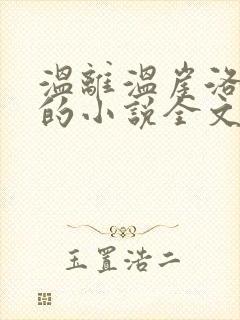 温離温崖洛
的小说全文
玉置浩二